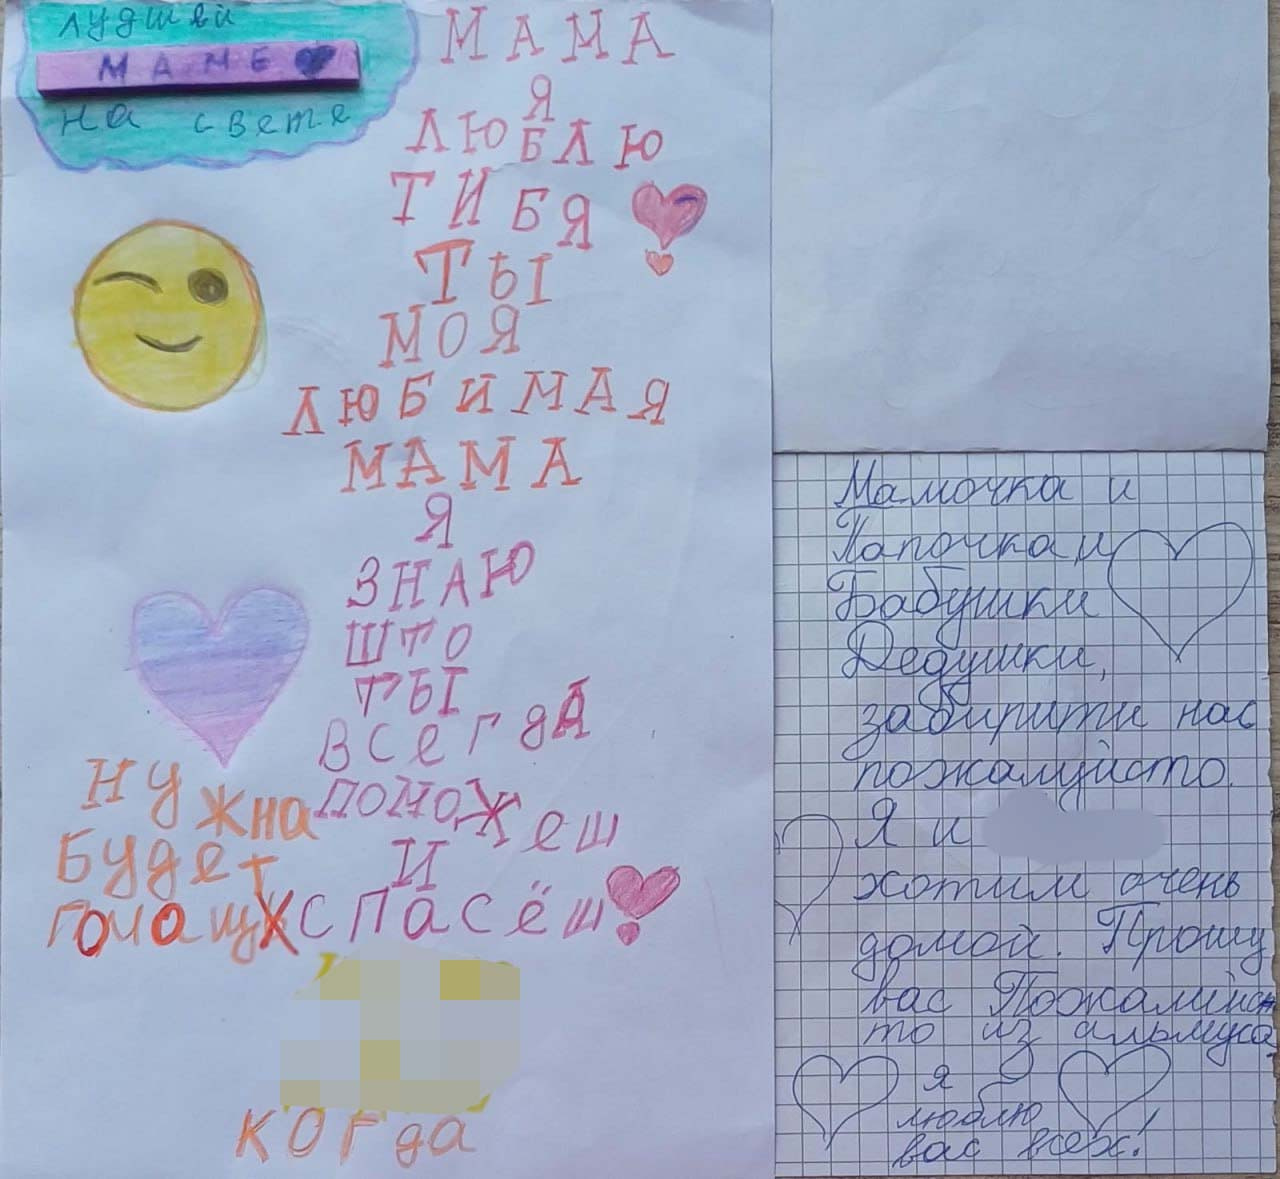 лудшей
МАМЕ
на свете
МАМА
Я
ЛЮБЛЮ
ТИБЯ
ТЫ
МОЯ
ЛЮБИМАЯ
МАМА
Я
ЗНАЮ
ШТО
ТЫ
ВСЕГДА
ПОМОЖЕШ
И
СПАСЁШ
КОГДА
НУЖНА
БУДЕТ
Мамочка и
Папочка и
Бабушки
Дедушки,
забирити нас
пожалуйсто.
Я и
хотим очень
домой. Прошу
вас Пожалуйс
то из
я
люблю
вас всех!